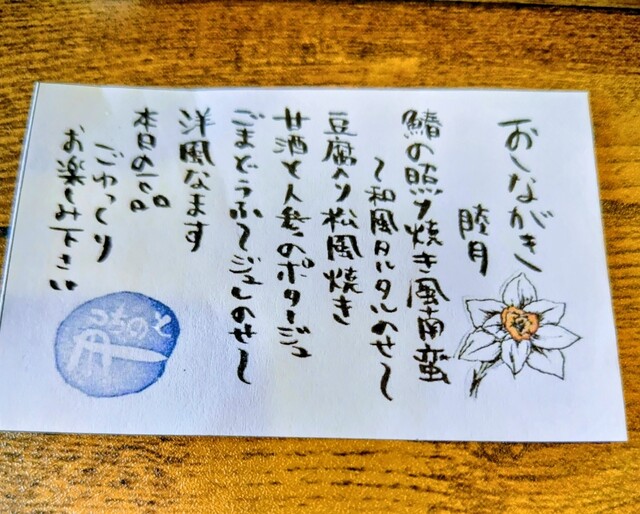 おしながき
睦月
鰆の照り焼き風南蛮
〜和風タルタルのせ〜
豆腐入り松風焼き
甘酒と人参のポタージュ
ごまどうふ〜ジュレのせ〜
洋風なます
本日の一品
ごゆっくり
お楽しみ下さい
こちのと
舟